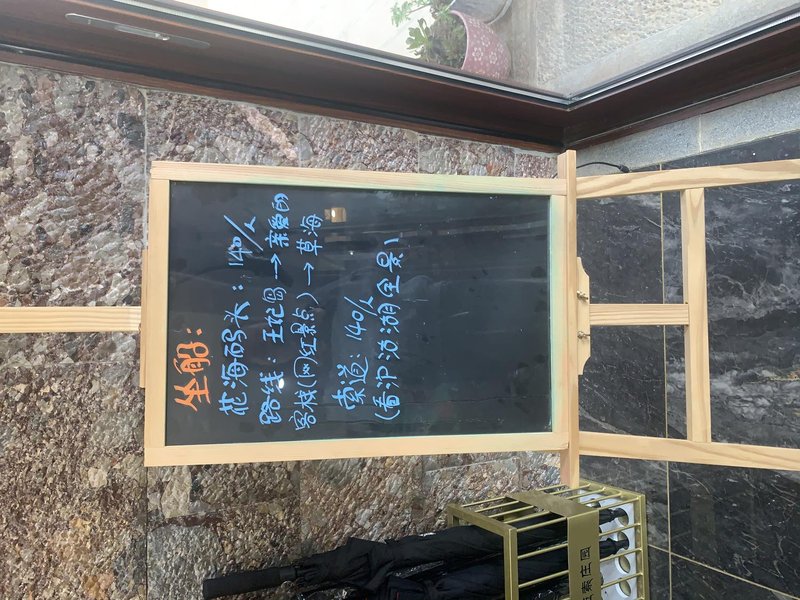 坐船:
花海码头: 140/人
路线: 王妃岛→亲爱的
客栈(网红景点)→草海
索道: 140/人
(看泸沽湖全景)
索庄园